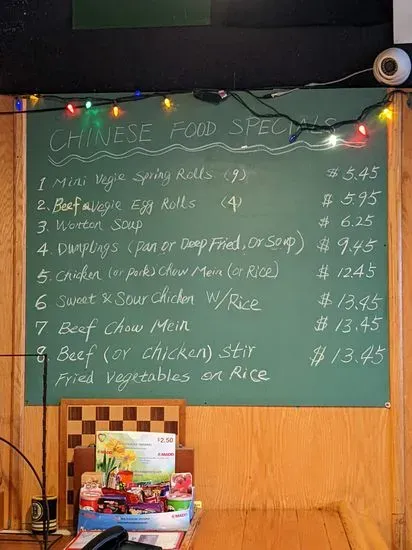 CHINESE FOOD SPECIALS
1 Mini Vegie Spring Rolls (9) $5.45
2. Beef & Vegie Egg Rolls (4) $5.95
3 Wonton Soup $6.25
4 Dumplings (Pan or Deep Fried, or Soup) $9.45
5. Chicken (or pork) Chow Mein (or Rice) $12.45
6 Sweet & Sour Chicken W/Rice $13.45
7 Beef Chow Mein $13.45
8. Beef (or chicken) Stir $13.45
Fried Vegetables on Rice
$2.50
MADD